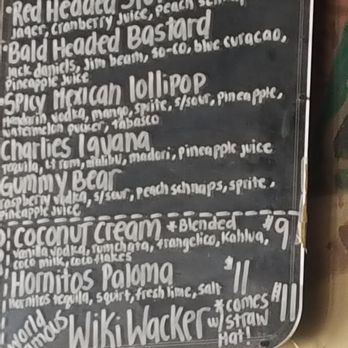 Red Headed
Jager, cranberry juice, peach
Bald Headed Bastard
Jack daniels, Jim beam, So-co, blue curacao,
pineapple juice
Spicy Mexican lollipop
Mandarin vodka, mango, sprite, s/sour, pineapple,
watermelon pucker, tabasco
Charlies Iguana
Tequila, Lt rum, malibu, madori, pineapple juice
Gummy Bear
raspberry vodka, s/sour, peach schnaps, sprite,
pineapple juice
Coconut Cream *Blended $9
vanilla vodka, rumchata, frangelica, Kahlua,
coco milk, coco flakes
Hornitos Paloma $11
Hornitos tequila, squirt, fresh lime, salt
World Famous Wiki Wacker *comes w/ straw Hat! $11